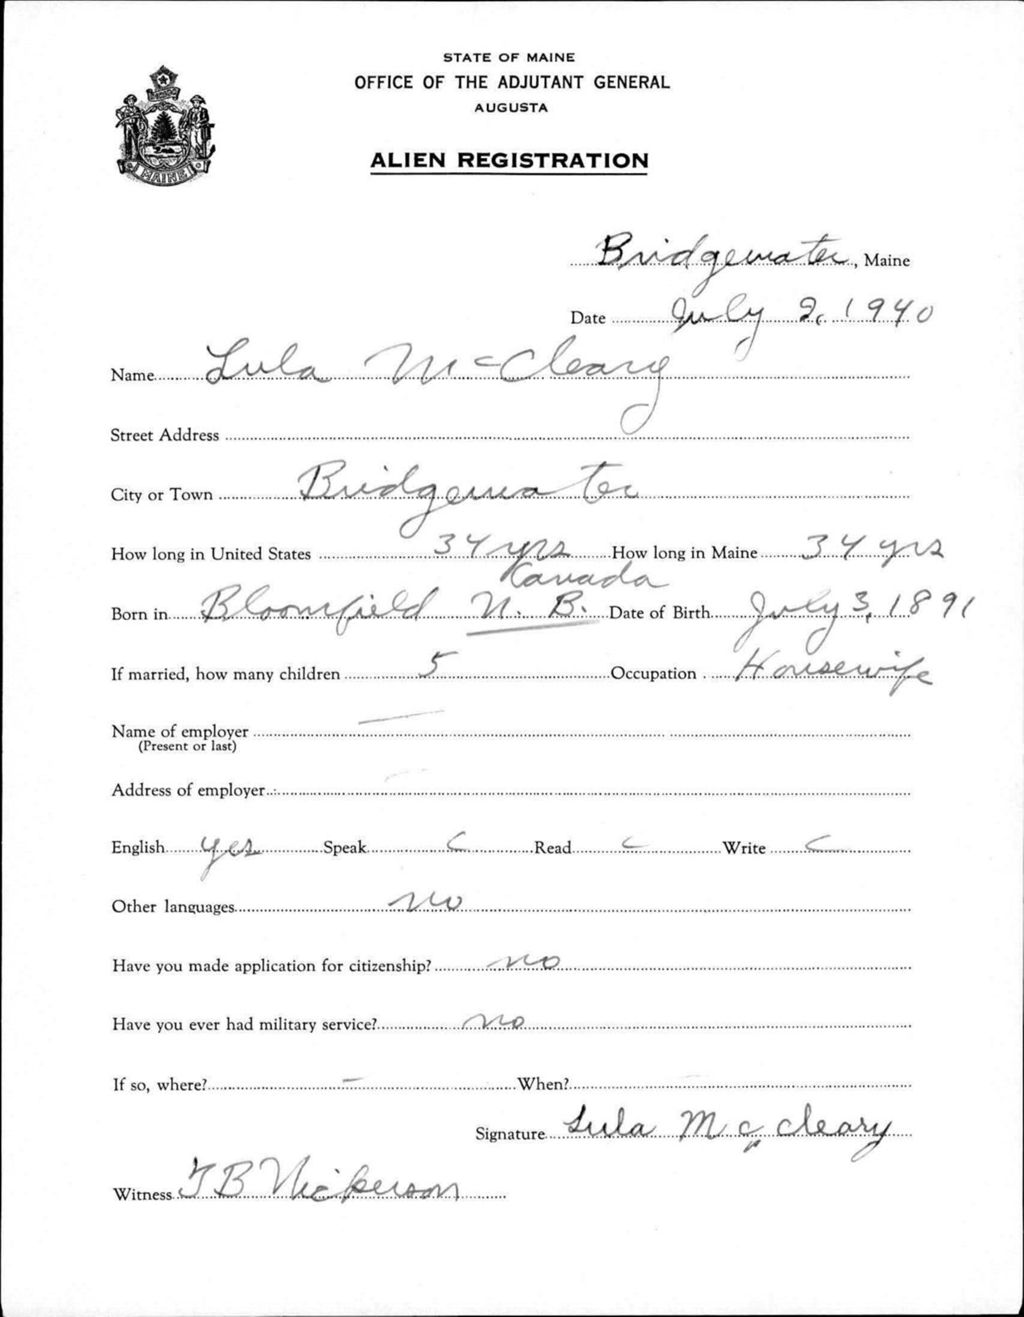 STATE OF MAINE
OFFICE OF THE ADJUTANT GENERAL
AUGUSTA
ALIEN REGISTRATION
MAINE
Bridgewater, Maine
Date July 2, 1940
Name Lula McCleary
Street Address
City or Town Bridgewater
How long in United States 34 yrs How long in Maine 34 yrs
Canada
Born in Bloomfield N. B. Date of Birth July 3, 1891
If married, how many children 5 Occupation Housewife
Name of employer —
(Present or last)
Address of employer -
English yes Speak Read Write
Other languages no
Have you made application for citizenship? no
Have you ever had military service? no
If so, where? - When?
Signature Lula McCleary
Witness T B Nickerson